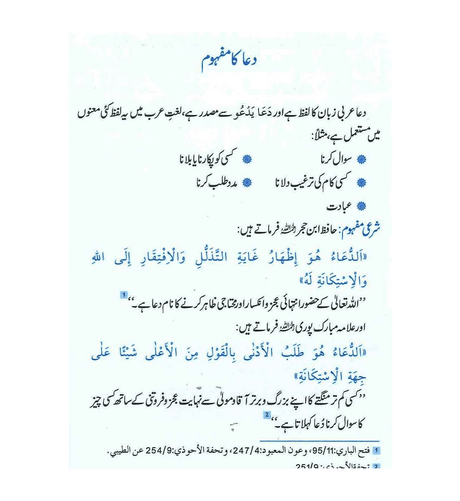 دعا کا مفہوم
دعا عربی زبان کا لفظ ہے اور دَعَا یَدْعُو سے مصدر ہے، لغتِ عرب میں یہ لفظ کئی معنوں
میں مستعمل ہے، مثلاً:
سوال کرنا
کسی کو پکارنا یا بلانا
کسی کام کی ترغیب دلانا
مدد طلب کرنا
عبادت
شرعی مفہوم: حافظ ابن حجر رحمہ اللہ فرماتے ہیں:
«اَلدُّعَاءُ هُوَ إِظْهَارُ غَايَةِ التَّذَلُّلِ وَالْاِفْتِقَارِ إِلَى اللهِ
وَالْاِسْتِكَانَةِ لَهُ»
’’اللہ تعالیٰ کے حضور انتہائی عجز و انکسار اور محتاجی ظاہر کرنے کا نام دعا ہے۔‘‘ 1
اور علامہ مبارک پوری رحمہ اللہ فرماتے ہیں:
«اَلدُّعَاءُ هُوَ طَلَبُ الْأَدْنٰى بِالْقَوْلِ مِنَ الْأَعْلٰى شَيْئًا عَلٰى
جِهَةِ الْاِسْتِكَانَةِ»
’’کسی کم تر منگتے کا اپنے بزرگ و برتر آقا و مولیٰ سے نہایت عجز و فروتنی کے ساتھ کسی چیز
کا سوال کرنا دُعا کہلاتا ہے۔‘‘ 2
1 فتح الباري: 95/11، وعون المعبود: 247/4، وتحفة الأحوذي: 254/9 عن الطيبي.
2 تحفة الأحوذي: 251/9.